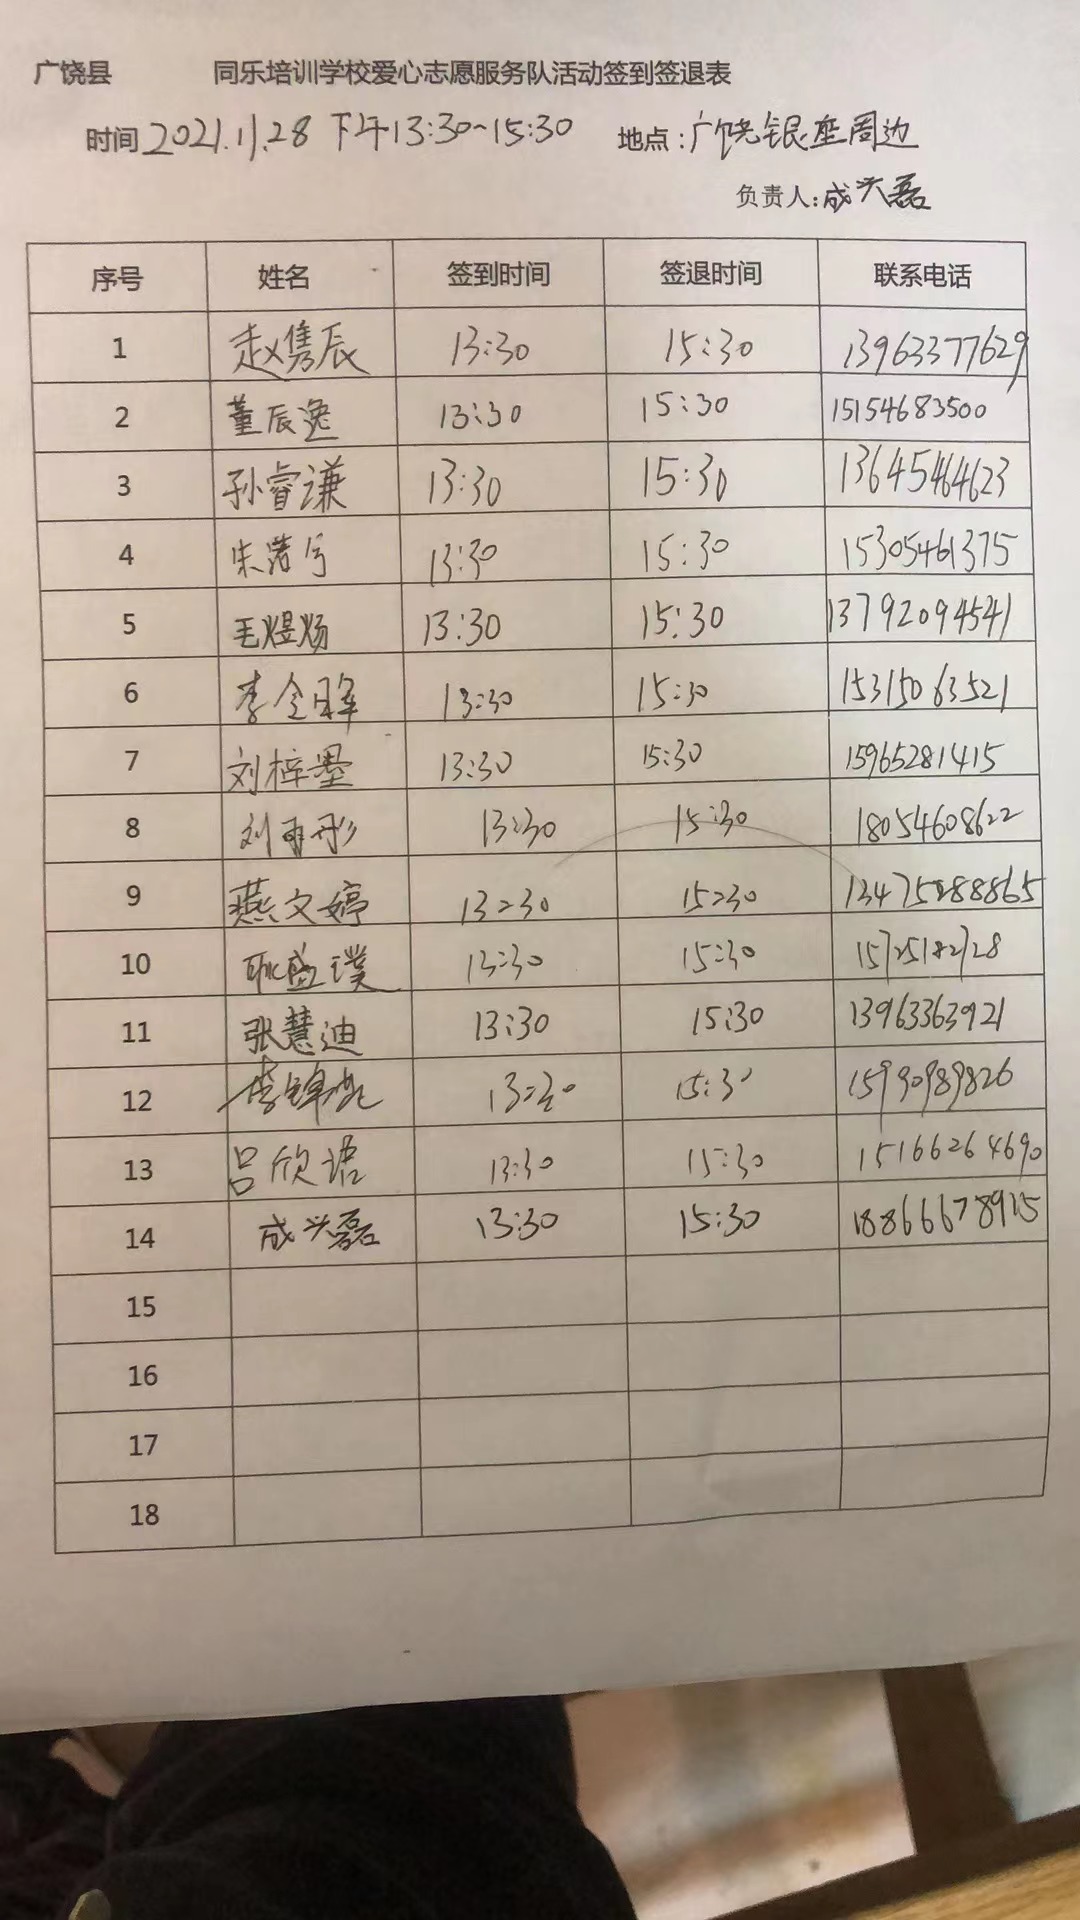 广饶县 同乐培训学校爱心志愿服务队活动签到签退表
时间 2021.11.28 下午13:30~15:30 地点:广饶银座周边
负责人:成兴磊
序号 姓名 签到时间 签退时间 联系电话
1 赵隽辰 13:30 15:30 13963377629
2 董辰逸 13:30 15:30 15154683500
3 孙睿谦 13:30 15:30 13645464623
4 朱 13:30 15:30 15305461375
5 毛煜炀 13:30 15:30 13792094541
6 李 13:30 15:30 15315063521
7 刘梓墨 13:30 15:30 15965281415
8 刘雨彤 13:30 15:30 18054608622
9 燕文婷 13:30 15:30 13475288865
10 耿盛璞 13:30 15:30
11 张慧迪 13:30 15:30 13963363921
12 李锦 13:30 15:3 15990989826
13 吕欣语 13:30 15:30 15166264690
14 成兴磊 13:30 15:30
15
16
17
18